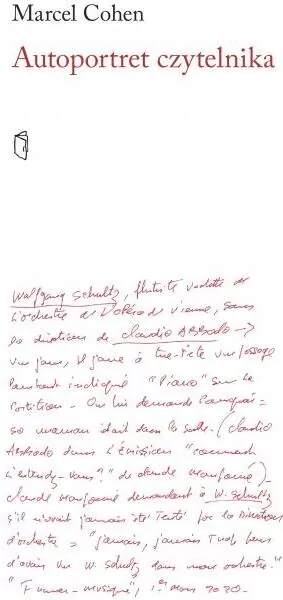 Marcel Cohen
Autoportret czytelnika
Wolfgang Schultz, flûtiste vedette de
l'orchestre de l'Opéra de Vienne, sous
la direction de Claudio Abbado →
un jour, il joue à tue-tête un passage
pourtant indiqué "Piano" sur la
partition. On lui demande pourquoi =
sa maman était dans la salle. (Claudio
Abbado dans l'émission "Comment
l'entendez-vous?" de Claude Maupomé)
Claude Maupomé demandant à W. Schultz
s'il n'avait jamais été tenté par la direction
d'orchestre = "jamais, jamais
d'avoir un W. Schultz dans mon orchestre."
"France-musique", mars 2020.